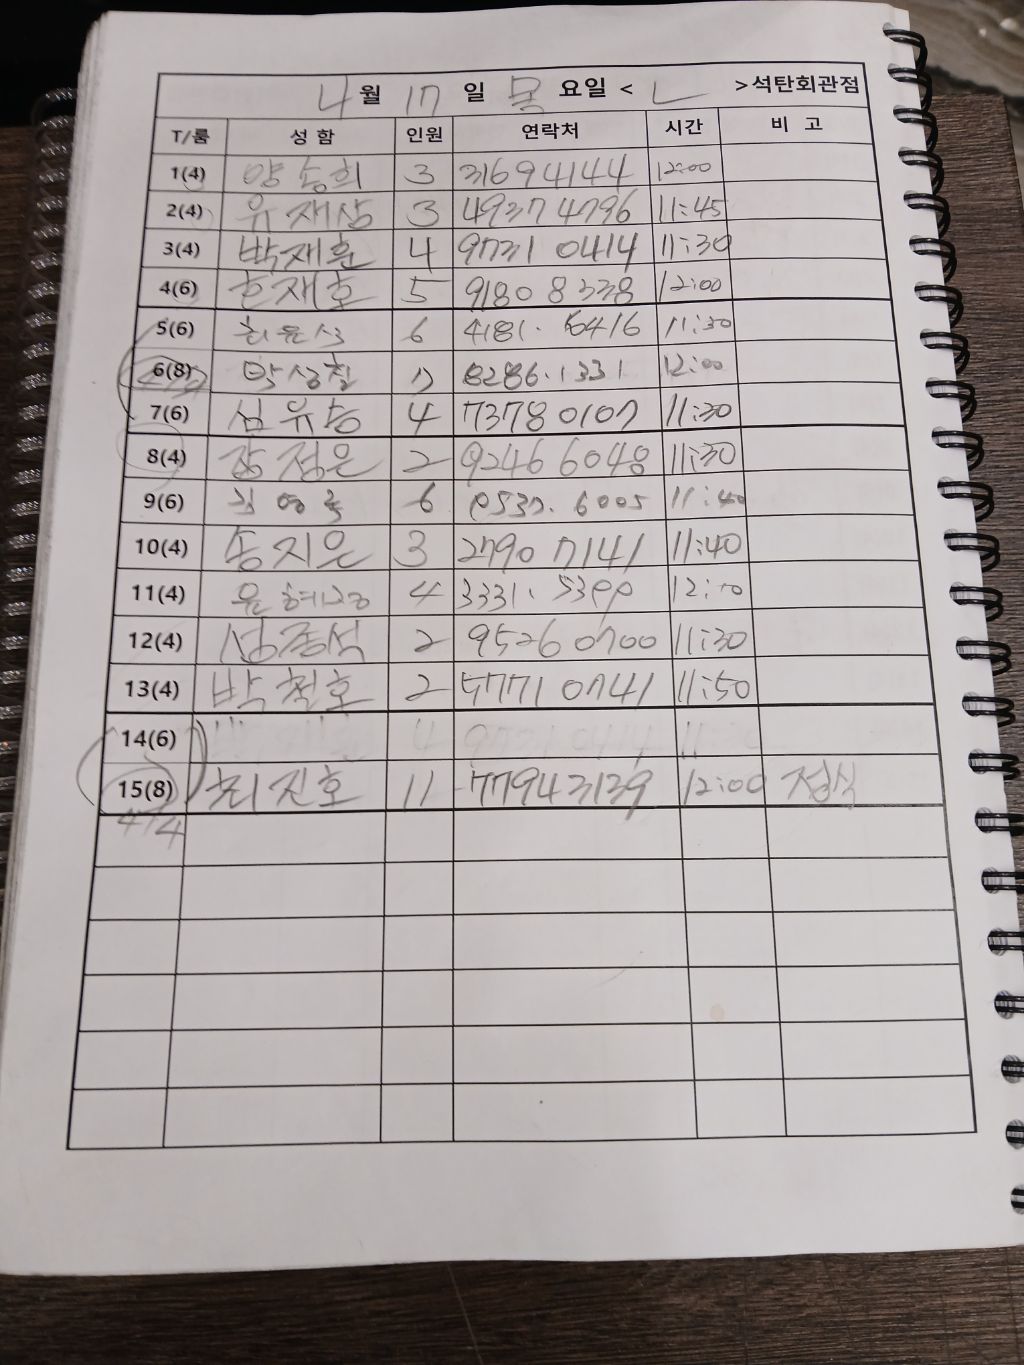 4월 17일 목요일 < L >석탄회관점
T/룸 성 함 인원 연락처 시간 비 고
1(4) 양송희 3 3169 4144 12:00
2(4) 유재상 3 4937 4796 11:45
3(4) 박재훈 4 9731 0414 11:30
4(6) 호재호 5 9180 8338 12:00
5(6) 최윤석 6 4181. 6416 11:30
6(8) 박상철 17 8286.1331 12:00
7(6) 심유송 4 7378 0107 11:30
8(4) 장정은 2 9246 6048 11:30
9(6) 6 6005 11:40
10(4) 송지은 3 2790 7141 11:40
11(4) 윤혜경 4 3331. 12:10
12(4) 2 9526 0700 11:30
13(4) 박철호 2 5771 0741 11:50
14(6) 4 9731 0414 11
15(8) 최진호 11 7794 3139 12:00 정식
4/4